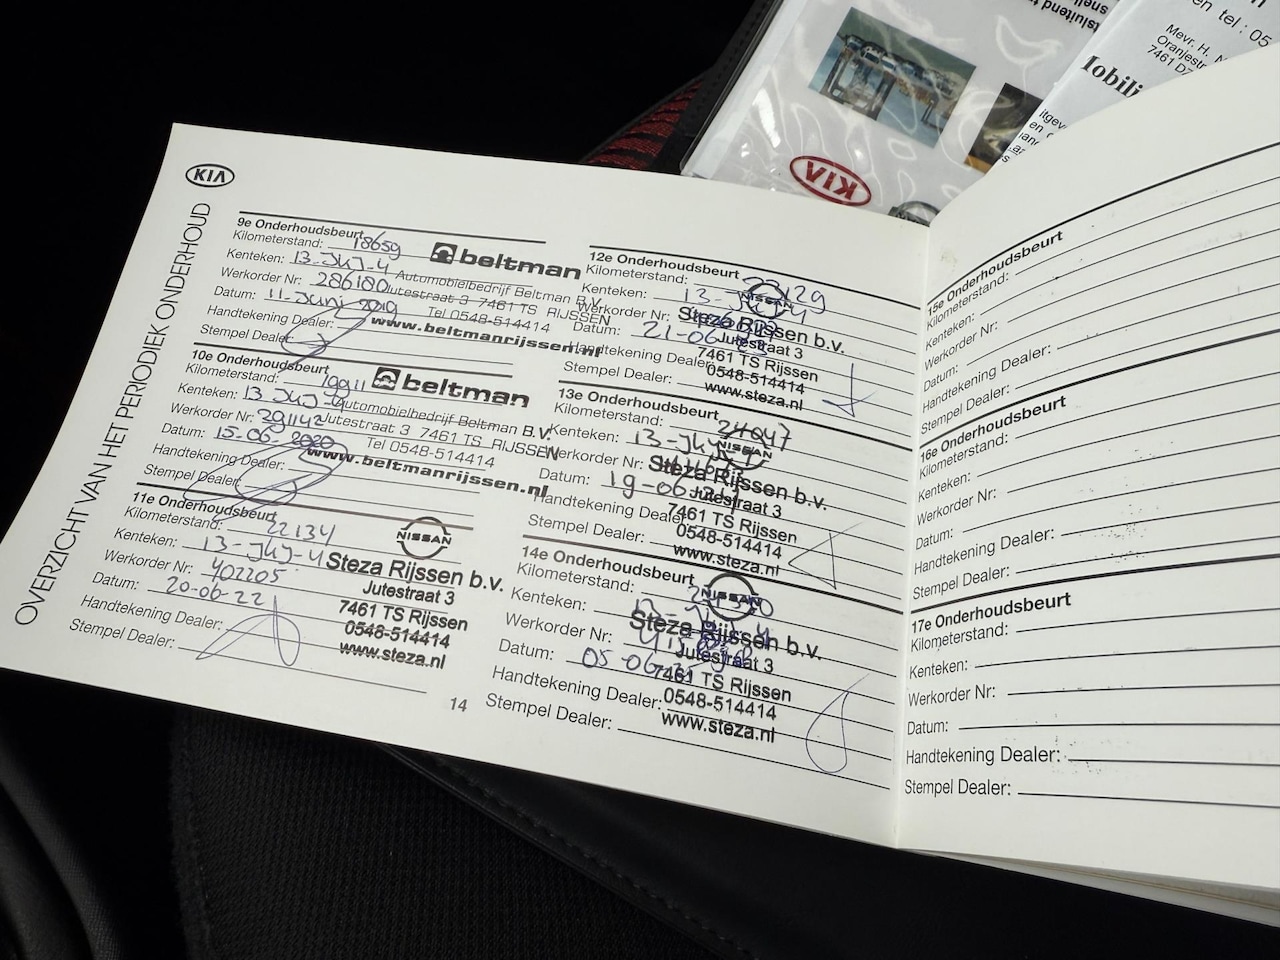 KIA
OVERZICHT VAN HET PERIODIEK ONDERHOUD
9e Onderhoudsbeurt
Kilometerstand: 18659
Kenteken: 13-JKJ-4
Werkorder Nr: 286180
Datum: 11-Juni 2019
Handtekening Dealer:
Stempel Dealer:
beltman
Automobielbedrijf Beltman B.V.
Jutestraat 3 7461 TS RIJSSEN
Tel 0548-514414
www.beltmanrijssen.nl
10e Onderhoudsbeurt
Kilometerstand: 19911
Kenteken: 13-JKJ-4
Werkorder Nr: 291142
Datum: 15-06-2020
Handtekening Dealer:
Stempel Dealer:
beltman
Automobielbedrijf Beltman B.V.
Jutestraat 3 7461 TS RIJSSEN
Tel 0548-514414
www.beltmanrijssen.nl
11e Onderhoudsbeurt
Kilometerstand: 22134
Kenteken: 13-JKJ-4
Werkorder Nr: 402205
Datum: 20-06-22
Handtekening Dealer:
Stempel Dealer:
NISSAN
Steza Rijssen b.v.
Jutestraat 3
7461 TS Rijssen
0548-514414
www.steza.nl
14
12e Onderhoudsbeurt
Kilometerstand: 23129
Kenteken: 13-JKJ-4
Werkorder Nr:
Datum: 21-06-23
Handtekening Dealer:
Stempel Dealer:
NISSAN
Steza Rijssen b.v.
Jutestraat 3
7461 TS Rijssen
0548-514414
www.steza.nl
13e Onderhoudsbeurt
Kilometerstand: 24047
Kenteken: 13-JKJ-4
Werkorder Nr:
Datum: 19-06-24
Handtekening Dealer:
Stempel Dealer:
NISSAN
Steza Rijssen b.v.
Jutestraat 3
7461 TS Rijssen
0548-514414
www.steza.nl
14e Onderhoudsbeurt
Kilometerstand:
Kenteken: 13-JKJ-4
Werkorder Nr:
Datum: 05-06-25
Handtekening Dealer:
Stempel Dealer:
NISSAN
Steza Rijssen b.v.
Jutestraat 3
7461 TS Rijssen
0548-514414
www.steza.nl
15e Onderhoudsbeurt
Kilometerstand:
Kenteken:
Werkorder Nr:
Datum:
Handtekening Dealer:
Stempel Dealer:
16e Onderhoudsbeurt
Kilometerstand:
Kenteken:
Werkorder Nr:
Datum:
Handtekening Dealer:
Stempel Dealer:
17e Onderhoudsbeurt
Kilometerstand:
Kenteken:
Werkorder Nr:
Datum:
Handtekening Dealer:
Stempel Dealer:
KIA
tel : 05
Mevr. H.
7461